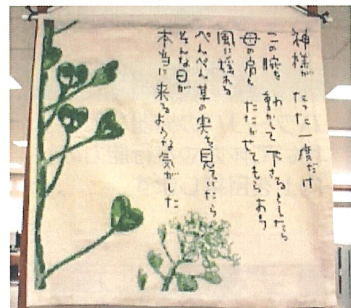 神様が たった一度だけ
この腕を 動かして下さるとしたら
母の肩を たたかせてもらおう
風に揺れる
ぺんぺん草の実を見ていたら
そんな日が
本当に来るような気がした